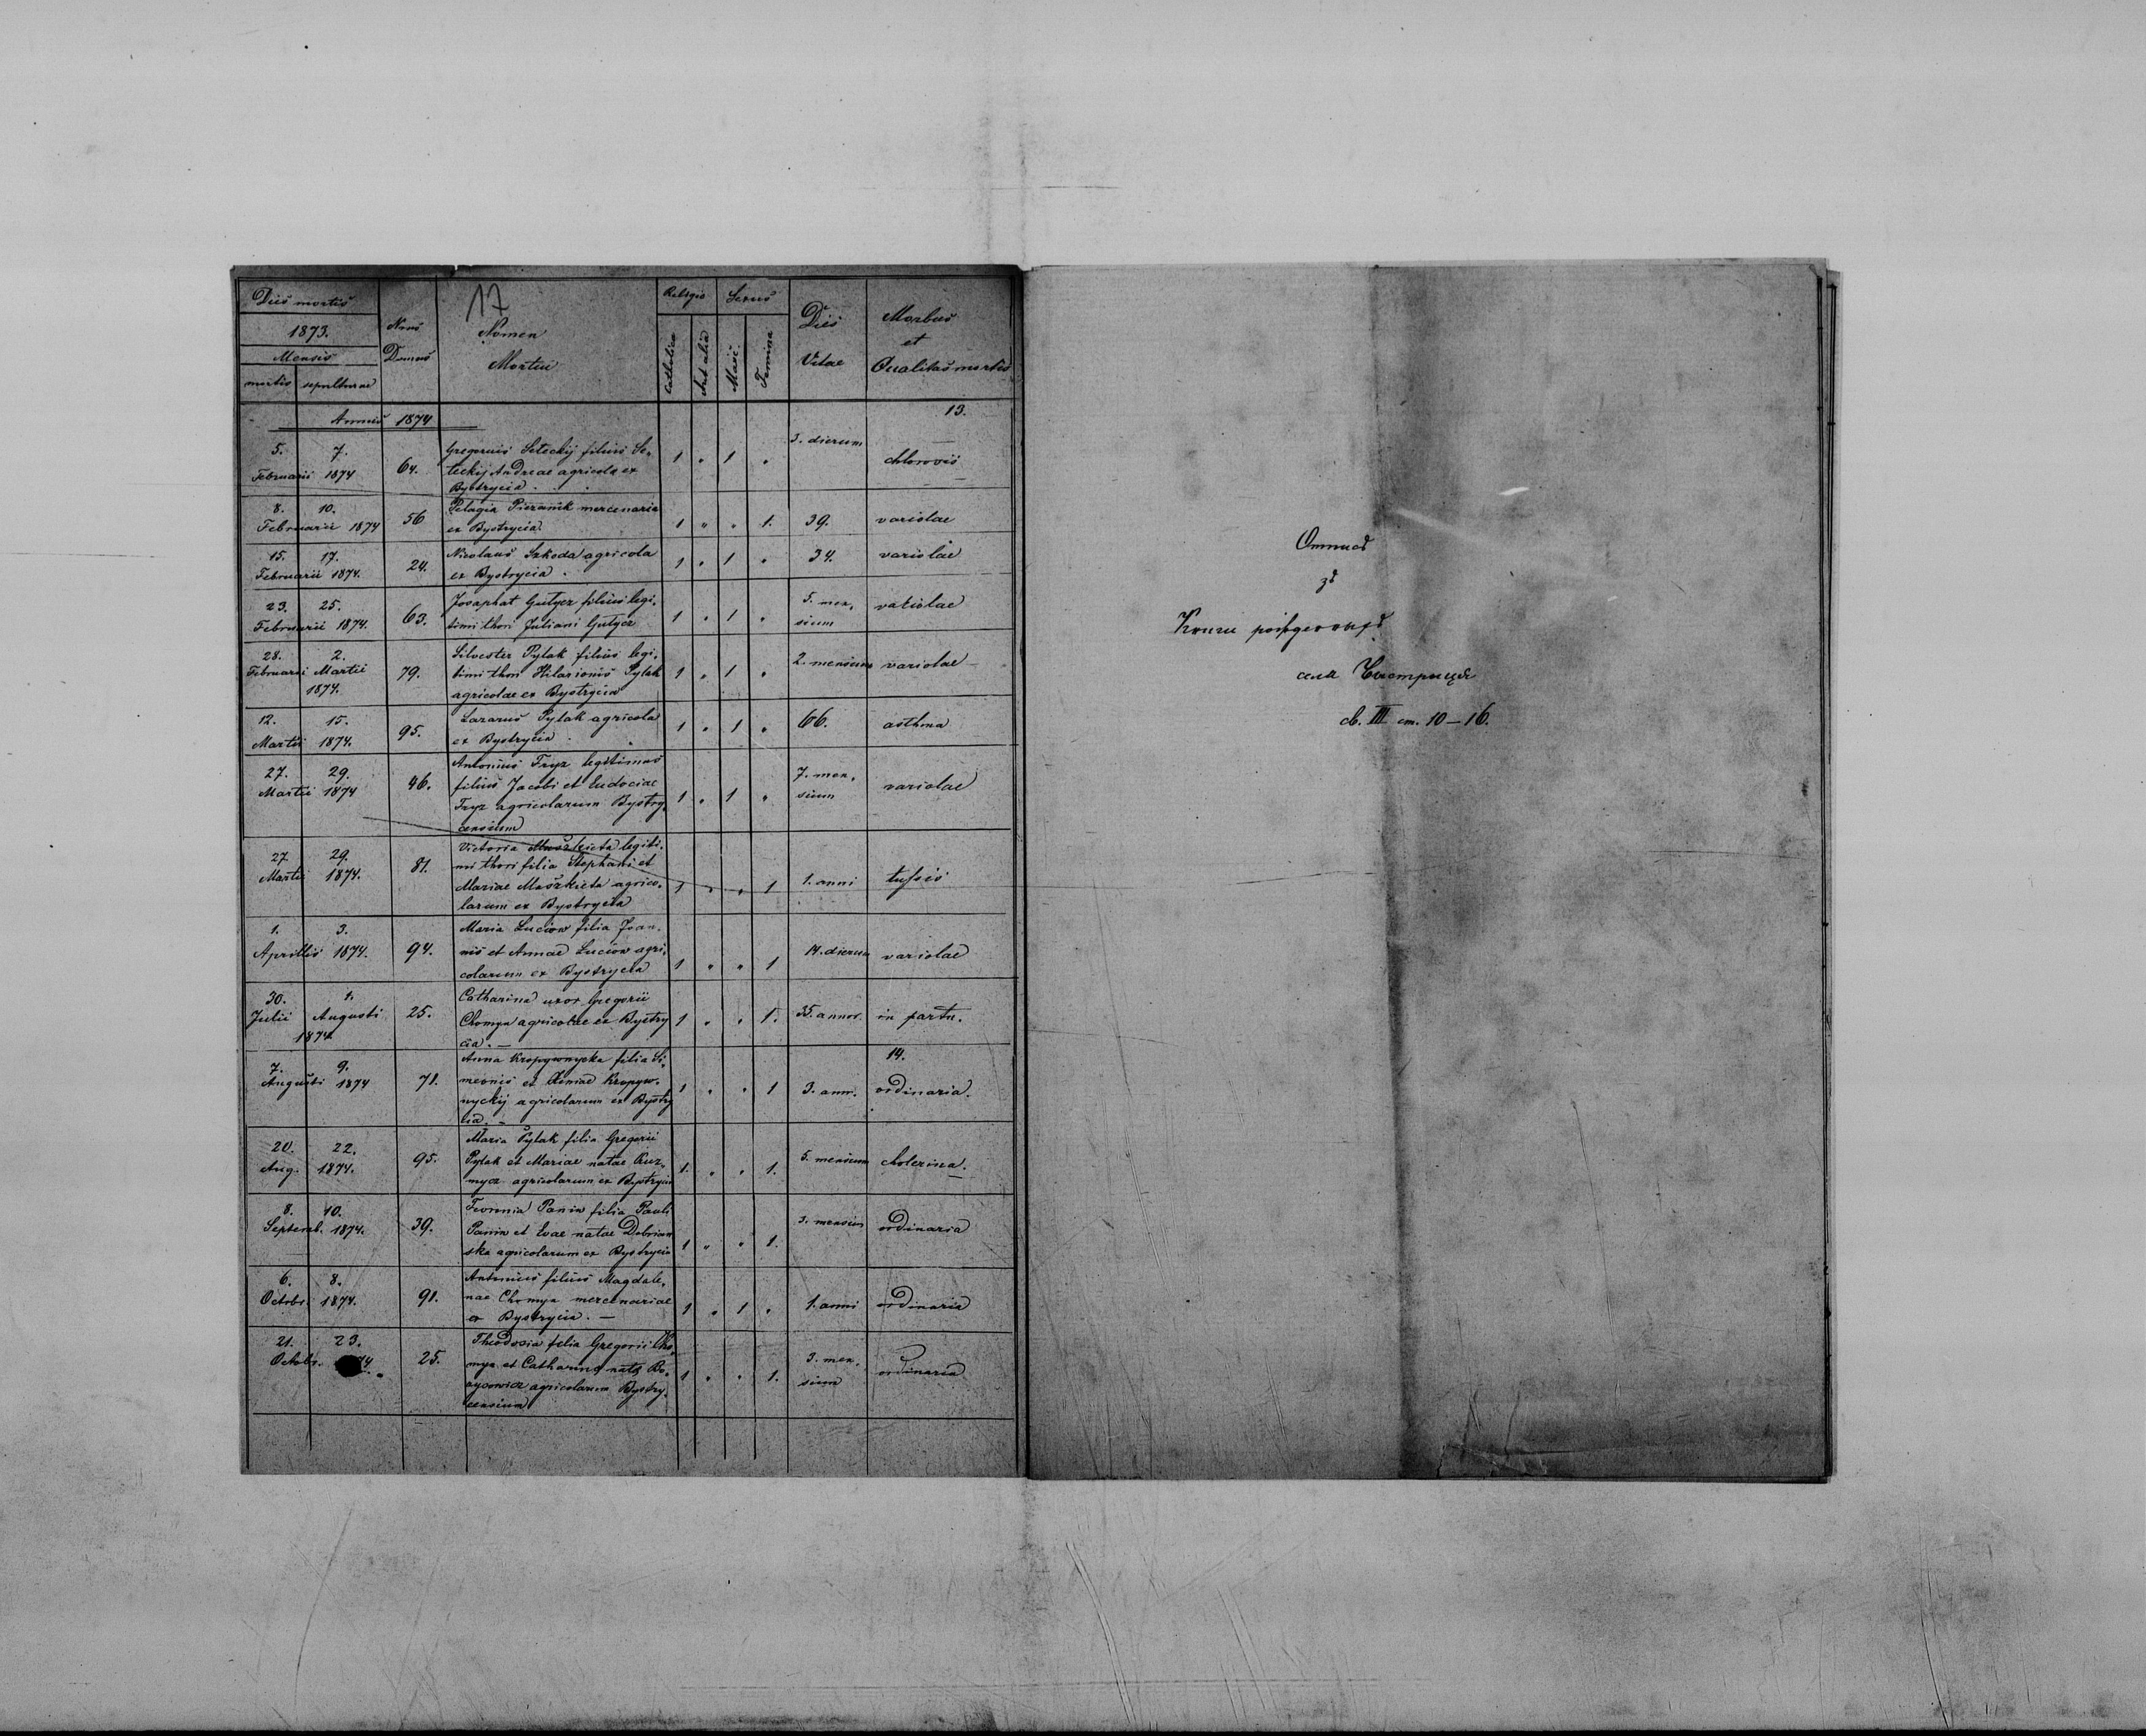 17
Dies mortis
1873.
Mensis
mortis sepulturae
Nrus
Domus
Nomen
Mortui
Religio
Catholica
Aut alia
Sexus
Masc.
Femina
Dies
Vitae
Morbus
et
Qualitas mortis
Annus 1874
13.
5. 7.
Februarii 1874
64.
Gregorius Seteckij filius Se-
teckij Andreae agricolae ex
Bystrycia.
1 " 1 "
3. dierum
chlorovis
8. 10.
Februarii 1874
56
Pelagia Pieranik mercenaria
ex Bystrycia
1 " " 1.
39.
variolae
15. 17.
Februarii 1874.
24.
Nicolaus Szkoda agricola
ex Bystrycia.
1 " 1 "
34.
variolae
23. 25.
Februarii 1874.
63.
Josaphat Gutycz filius legi-
timi thori Juliani Gutycz
1 " 1 "
5. men-
sium
variolae
28. 2.
Februarii Martii
1874.
79.
Silvester Pylak filius legi-
timi thori Hilarionis Pylak
agricolae ex Bystrycia
1 " 1 "
2. mensium
variolae
12. 15.
Martii 1874.
95.
Lazarus Pylak agricola
ex Bystrycia.
1 " 1 "
66.
asthma
27. 29.
Martii 1874
46.
Antonius Tryz legitimus
filius Jacobi et Eudociae
Tryz agricolarum Bystry-
censium
1 " 1 "
7. men-
sium
variolae
27 29.
Martii 1874.
81.
Victoria Muszkieta legiti-
mi thori filia Stephani et
Mariae Muszkieta agrico-
larum ex Bystrycia
1 " " 1
1. anni
tussis
1. 3.
Aprillis 1874.
94.
Maria Luciow filia Joan-
nis et Annae Luciow agri-
colarum ex Bystrycia
1 " " 1
14. dierum
variolae
30. 1.
Julii Augusti
1874
25.
Catharina uxor Gregorii
Chomyn agricolae ex Bystry
cia. —
1 " " 1.
35. annor.
in partu.
14.
7. 9.
Augusti 1874
71.
Anna Kropywnycka filia Si-
meonis et Xeniae Kropyw-
nyckij agricolarum ex Bystry
cia. —
1 " " 1
3. ann.
ordinaria.
20. 22.
Aug. 1874.
95.
Maria Pylak filia Gregorii
Pylak et Mariae natae Kuz-
mycz agricolarum ex Bystrycia
1. " " 1.
5. mensium
cholerina.
8. 10.
Septemb. 1874.
39.
Fevronia Paniw filia Pauli
Paniw et Evae natae Dobrian
ska agricolarum ex Bystrycia
1 " " 1.
3. mensium
ordinaria
6. 8.
Octobr 1874.
91.
Antonius filius Magdale-
nae Chomyn mercenariae
ex Bystrycia. —
1 " 1 "
1. anni
ordinaria
21. 23.
Octobr. 74.
25.
Theodosia filia Gregorii Cho-
myn et Catharina nata Bo-
rysowicz agricolarum Bystry-
censium
1 " " 1.
3. men-
sium
ordinaria
Отписъ
зъ
Книги
села Быстриця
св. III ст. 10–16.